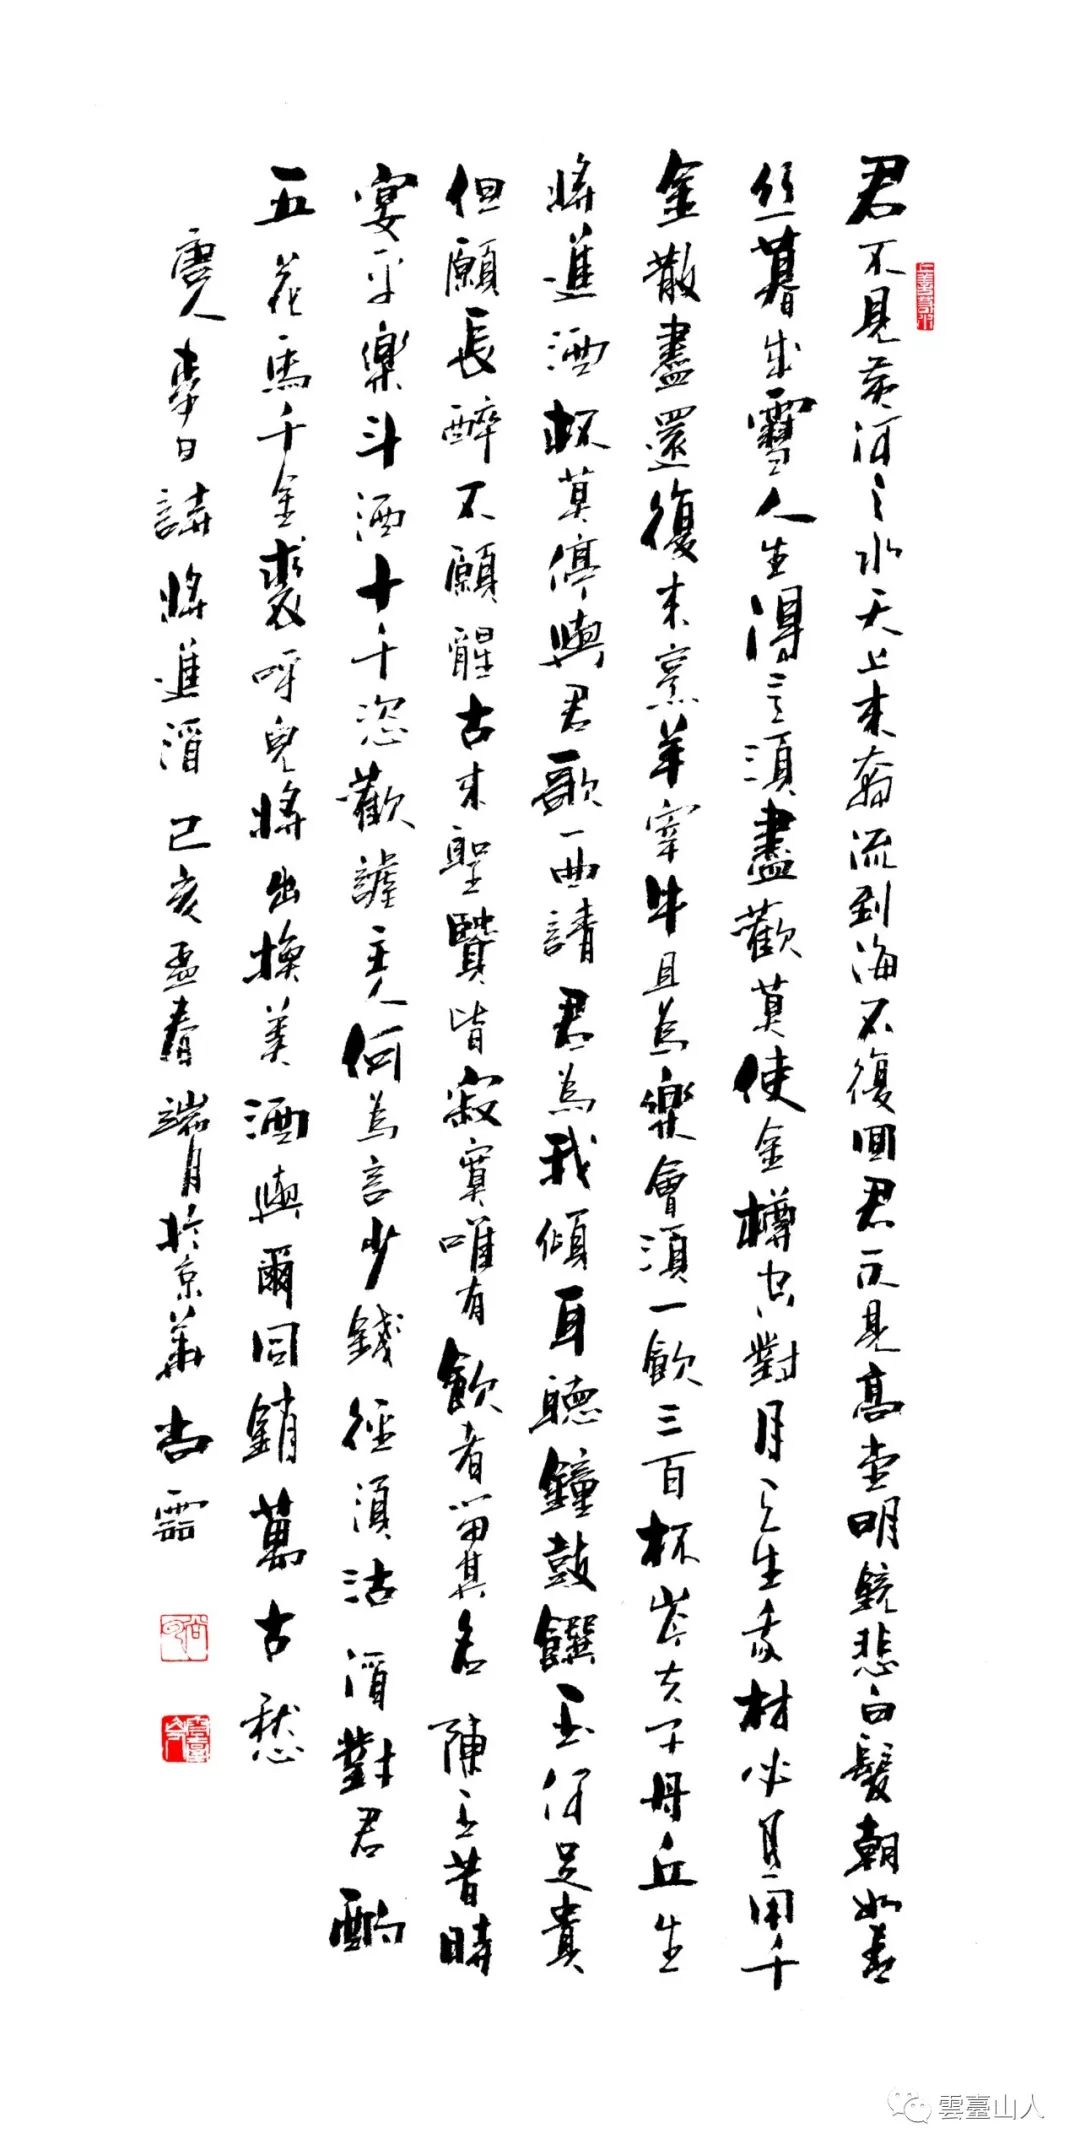 上善若水
君不見黃河之水天上來奔流到海不復回君不見高堂明鏡悲白髮朝如青
絲暮成雪人生得意須盡歡莫使金樽空對月天生我材必有用千
金散盡還復來烹羊宰牛且為樂會須一飲三百杯岑夫子丹丘生
將進酒杯莫停與君歌一曲請君為我傾耳聽鐘鼓饌玉何足貴
但願長醉不願醒古來聖賢皆寂寞唯有飲者留其名陳王昔時
宴平樂斗酒十千恣歡謔主人何為言少錢徑須沽酒對君酌
五花馬千金裘呼兒將出換美酒與爾同銷萬古愁
唐人李白詩將進酒己亥孟春端月於京華尚
雲臺山人